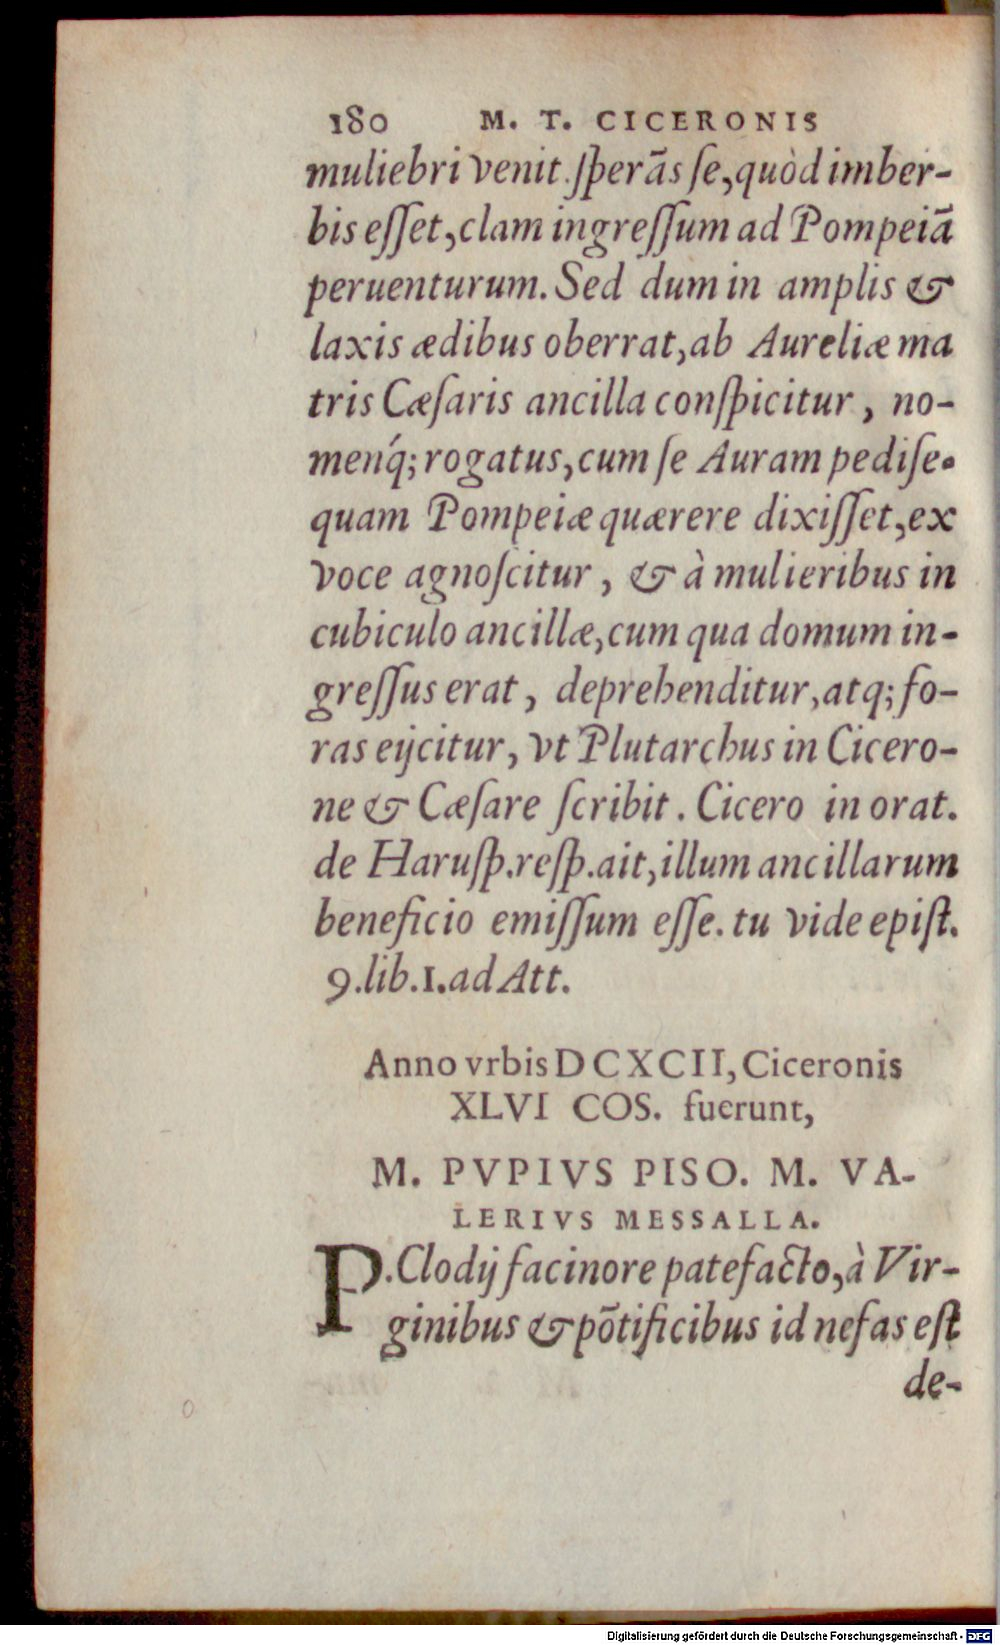 180 M. T. CICERONIS
muliebri venit. ſperãs ſe, quòd imber-
bis eſſet, clam ingreſſum ad Pompeiã
peruenturum. Sed dum in amplis &
laxis ædibus oberrat, ab Aureliæ ma
tris Cæſaris ancilla conſpicitur, no-
menq́; rogatus, cum ſe Auram pediſe-
quam Pompeiæ quærere dixiſſet, ex
voce agnoſcitur, & à mulieribus in
cubiculo ancillæ, cum qua domum in-
greſſus erat, deprehenditur, atq; fo-
ras eijcitur, vt Plutarchus in Cicero-
ne & Cæſare ſcribit. Cicero in orat.
de Haruſp. reſp. ait, illum ancillarum
beneficio emiſſum eſſe. tu vide epiſt.
9. lib. 1. ad Att.
Anno vrbis DCXCII, Ciceronis
XLVI COS. fuerunt,
M. PVPIVS PISO. M. VA-
LERIVS MESSALLA.
P. Clodij facinore patefacto, à Vir-
ginibus & põtificibus id nefas eſt
de-
Digitalisierung gefördert durch die Deutsche Forschungsgemeinschaft - DFG